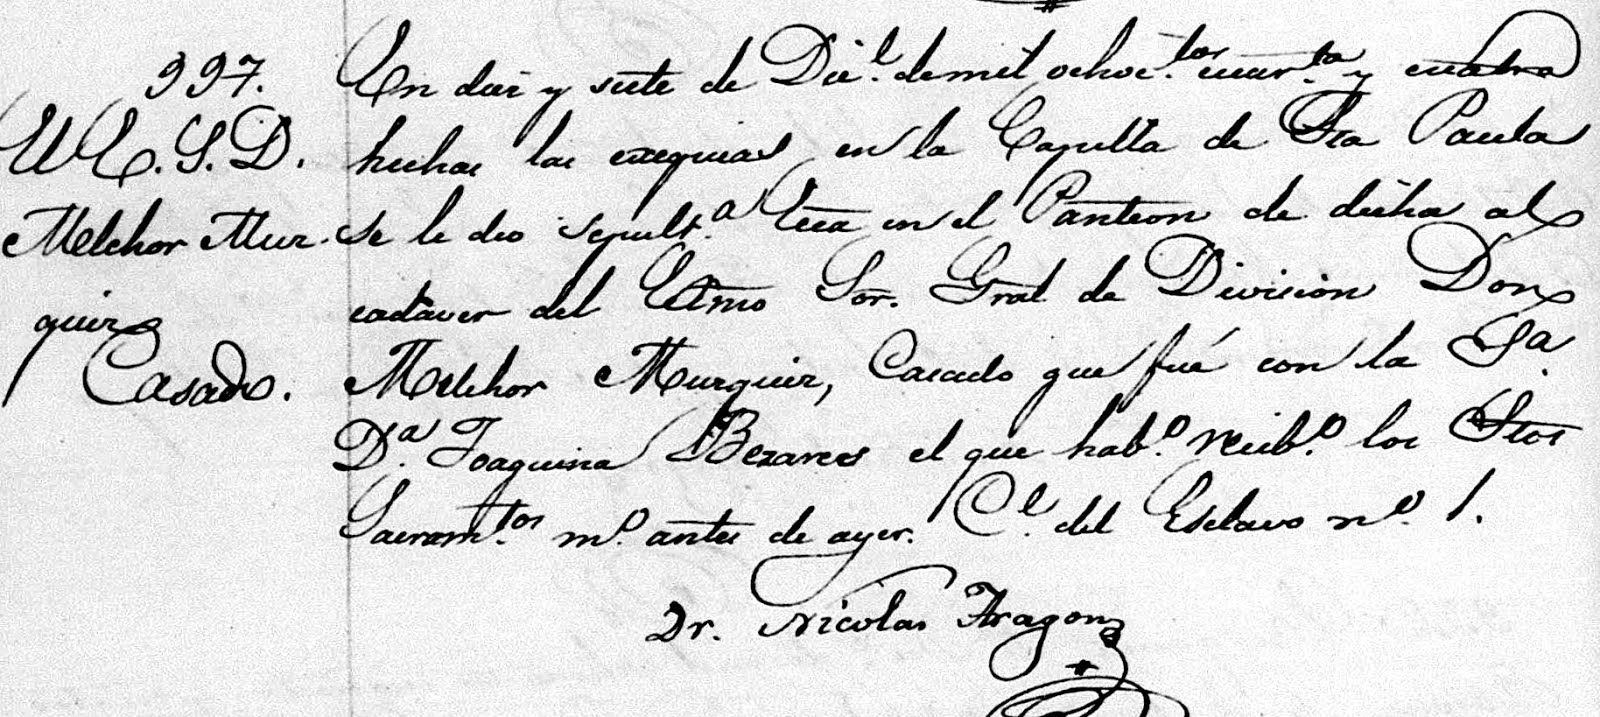 997.
El E. S. D.
Melchor Muz-
quiz
Casado.
En diez y siete de Dic.e de mil ochoc.tos cuar.ta y cuatro
hechas las exequias en la Capilla de Sta Paula
se le dio sepult.a Ecca en el Panteon de dicha al
cadaver del Exmo Sor. Gral de Division Don
Melchor Muzquiz, Casado que fué con la S.a
D.a Joaquina Bezares el que hab.o recib.o los Stos
Sacram.tos m.o antes de ayer. C.e del Esclavo n.o 1.
Dr. Nicolas Aragon